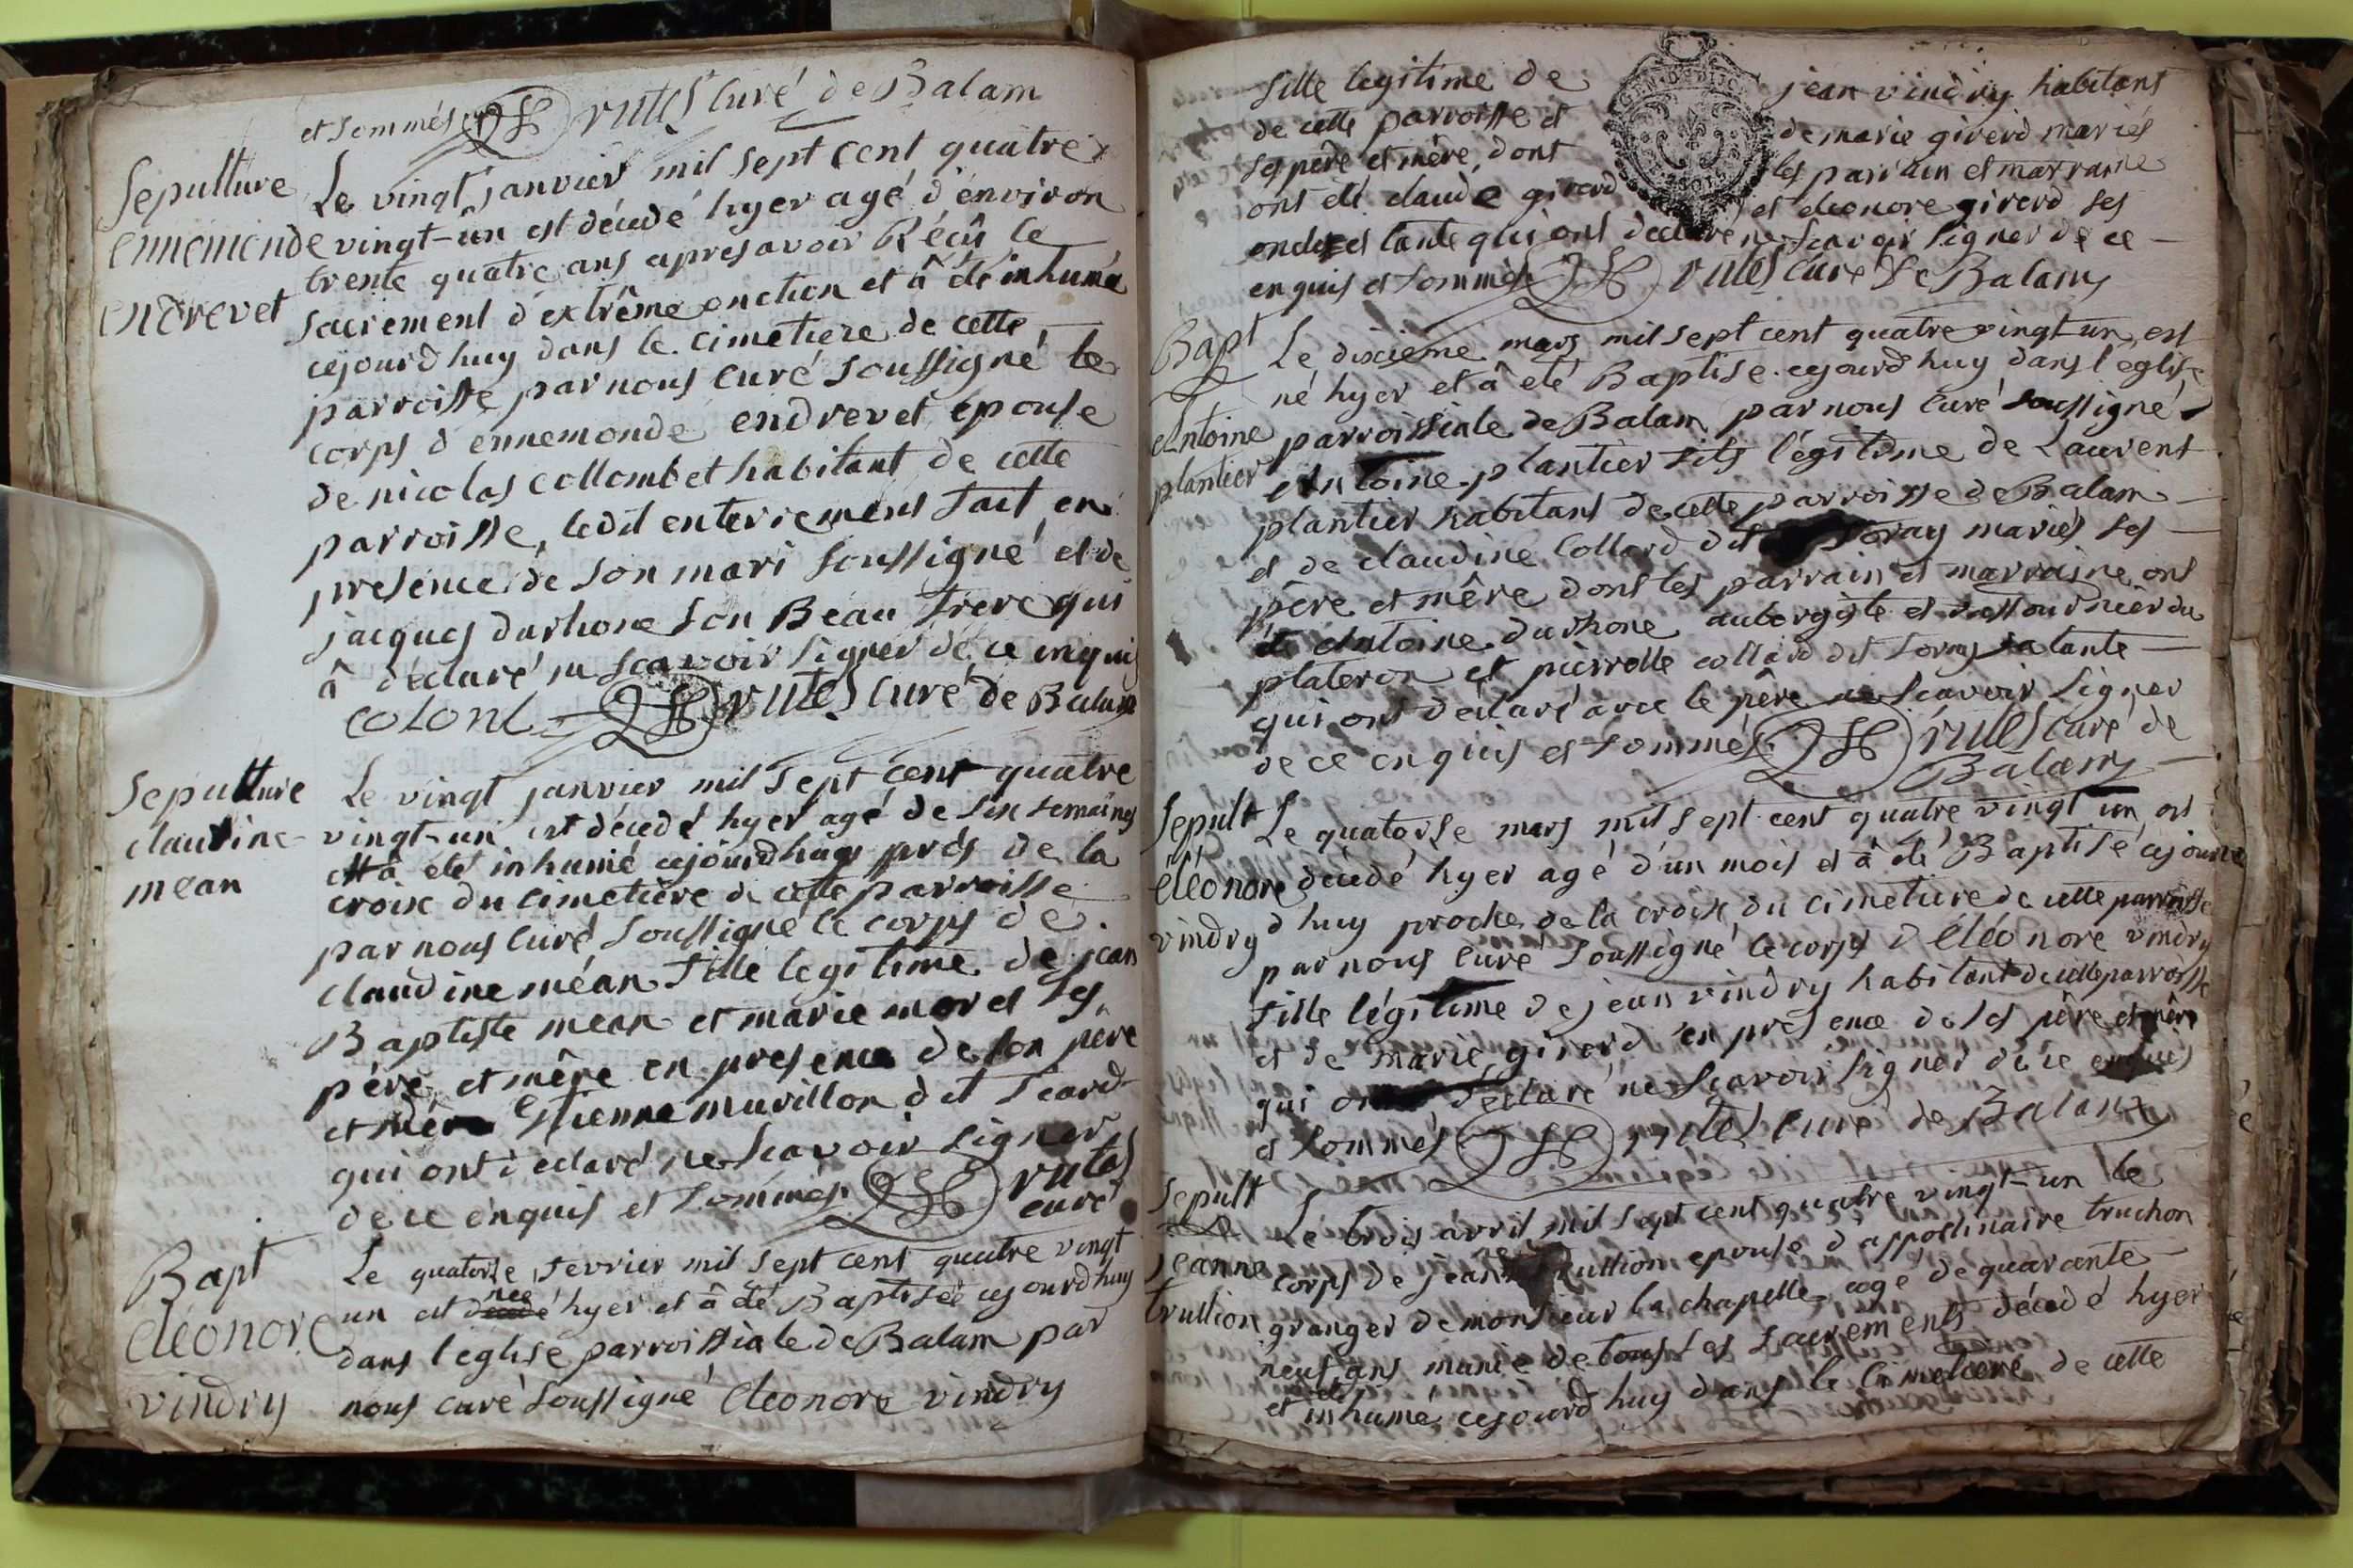 et sommés rutes curé de Balam
Sepulture
ennemonde
endrevet
Le vingt janvier mil sept cent quatre
vingt-un est décédé hyer agé d'environ
trente quatre ans apres avoir Réçû le
sacrement d'extrême onction et â été inhumé
cejourd huy dans le cimetiere de cette
parroisse par nous curé soussigné le
corps d'ennemonde endrevet epouse
de nicolas collombet habitant de cette
parroisse, ledit enterrement fait en
presence de son mari soussigné et de
jacques durhone son Beau frere qui
â déclaré ne scavoir signer de ce enquis
colonb rutes curé de Balam
Sepulture
claudine
mean
Le vingt janvier mil sept cent quatre
vingt-un est décedé hyer agé de six semaines
et â eté inhumé cejourdhuy prés de la
croix du cimetiére de cette parroisse
par nous curé soussigné le corps de
claudine méan fille legitime de jean
Baptiste mean et marie morel ses
pére et mêre en presence de son pere
et Estienne murillon dit
qui ont déclaré ne scavoir signer
de ce enquis et sommés rutes
curé
Bapt
éléonore
vindry
Le quatorse fevrier mil sept cent quatre vingt
un est née hyer et â été Baptisée cejourdhuy
dans l'eglise parroissiale de Balam par
nous curé soussigné Eleonore vindry
fille legitime de jean vindry habitant
de cette parroisse et de marie girerd mariés
ses pére et mère, dont les parrain et marraine
ont été claude girerd et eleonore girerd ses
oncle et tante qui ont declaré ne scavoir signer de ce
enquis et sommés rutes curé de Balam
Bapt
Antoine
plantier
Le dixieme mars mil sept cent quatre vingt-un est
né hyer et â eté Baptisé cejourd huy dans l'eglise
parroissiale de Balam par nous curé soussigné
Antoine plantier fils légitime de Laurent
plantier habitant de cette parroisse de Balam
et de claudine collard dit foray mariés ses
père et mêre dont les parrain et marraine ont
été Antoine durhone aubergiste et du
plateron et pierrette collard dit foray sa tante
qui ont déclaré avec le père ne scavoir signer
de ce enquis et sommés rutes curé de
Balam
Sepult
éléonore
vindry
Le quatorse mars mil sept cent quatre vingt un est
décédé hyer agé d'un mois et â été Baptisé cejour
d huy proche de la croix du cimetiere de cette parroisse
par nous curé soussigné le corps d'éléonore vindry
fille légitime de jean vindry habitant de cette parroisse
et de marie girerd en presence de ses pére et mère
qui ont déclaré ne scavoir signer de ce enquis
et sommés rutes curé de Balam
Sepult
jeanne
trullion
Le trois avril mil sept cent quatre vingt-un le
corps de jeanne trullion epouse d'appollinaire truchon
granger de monsieur la chapelle, agé de quarante
neuf ans munie de tous les sacrements décédé hyer
et été inhumé cejourd huy dans le cimetiere de cette